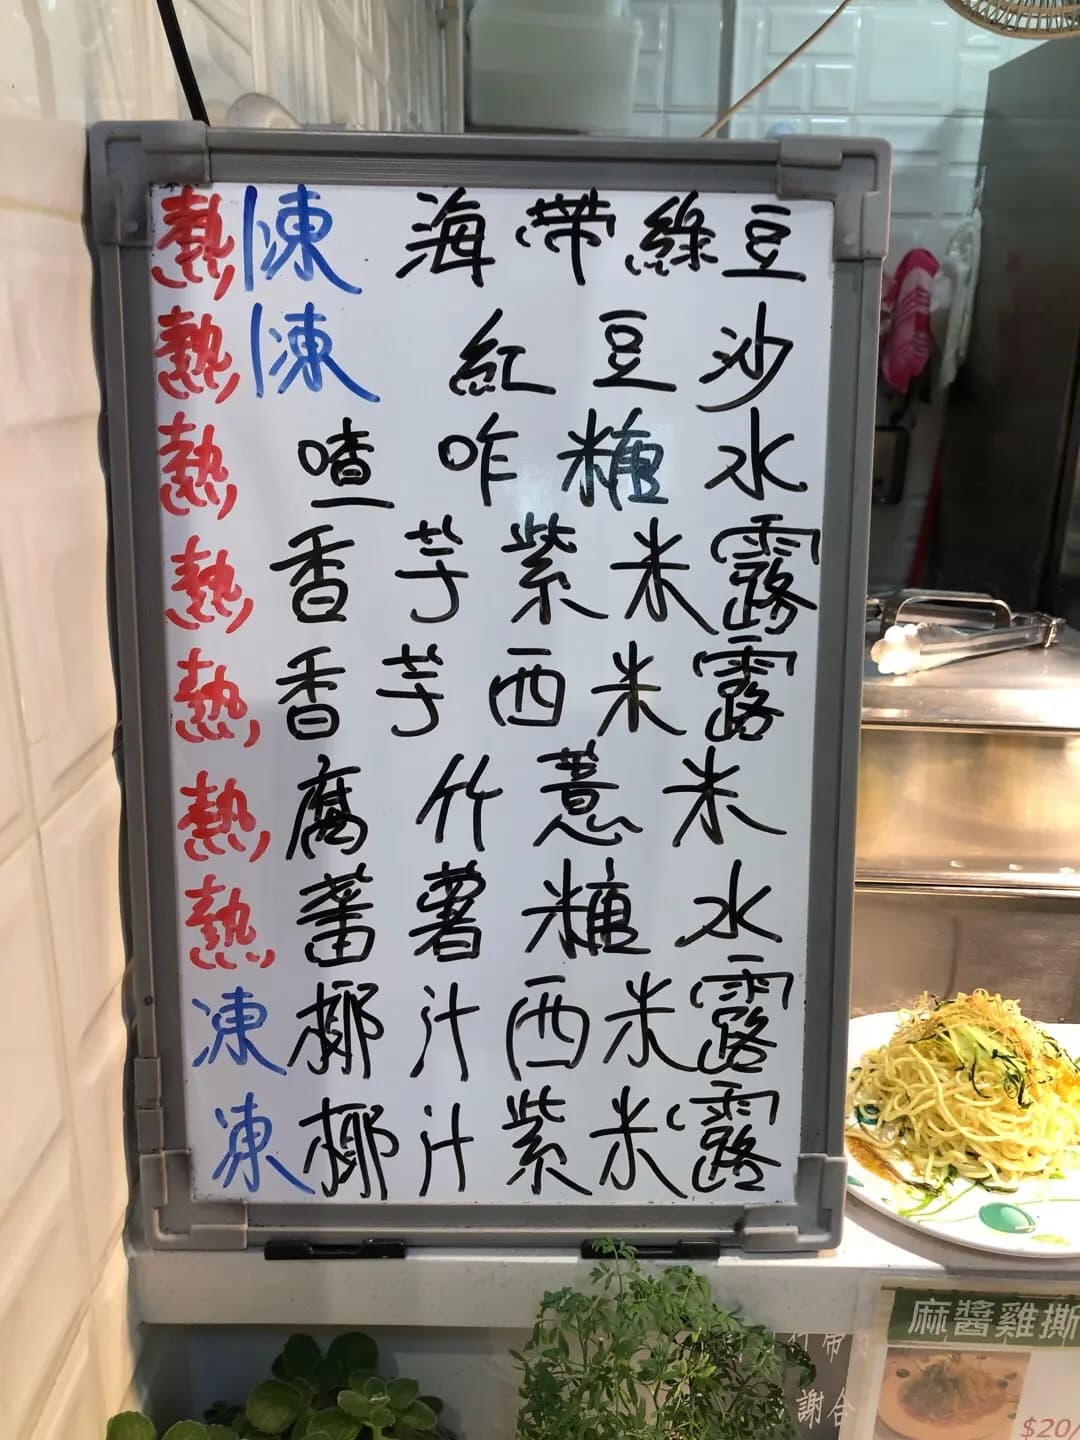 熱凍 海帶綠豆
熱凍 紅豆沙
熱 喳咋糖水
熱 香芋紫米露
熱 香芋西米露
熱 腐竹薏米
熱 蕃薯糖水
凍 椰汁西米露
凍 椰汁紫米露
麻醬雞撕
謝合
$20/